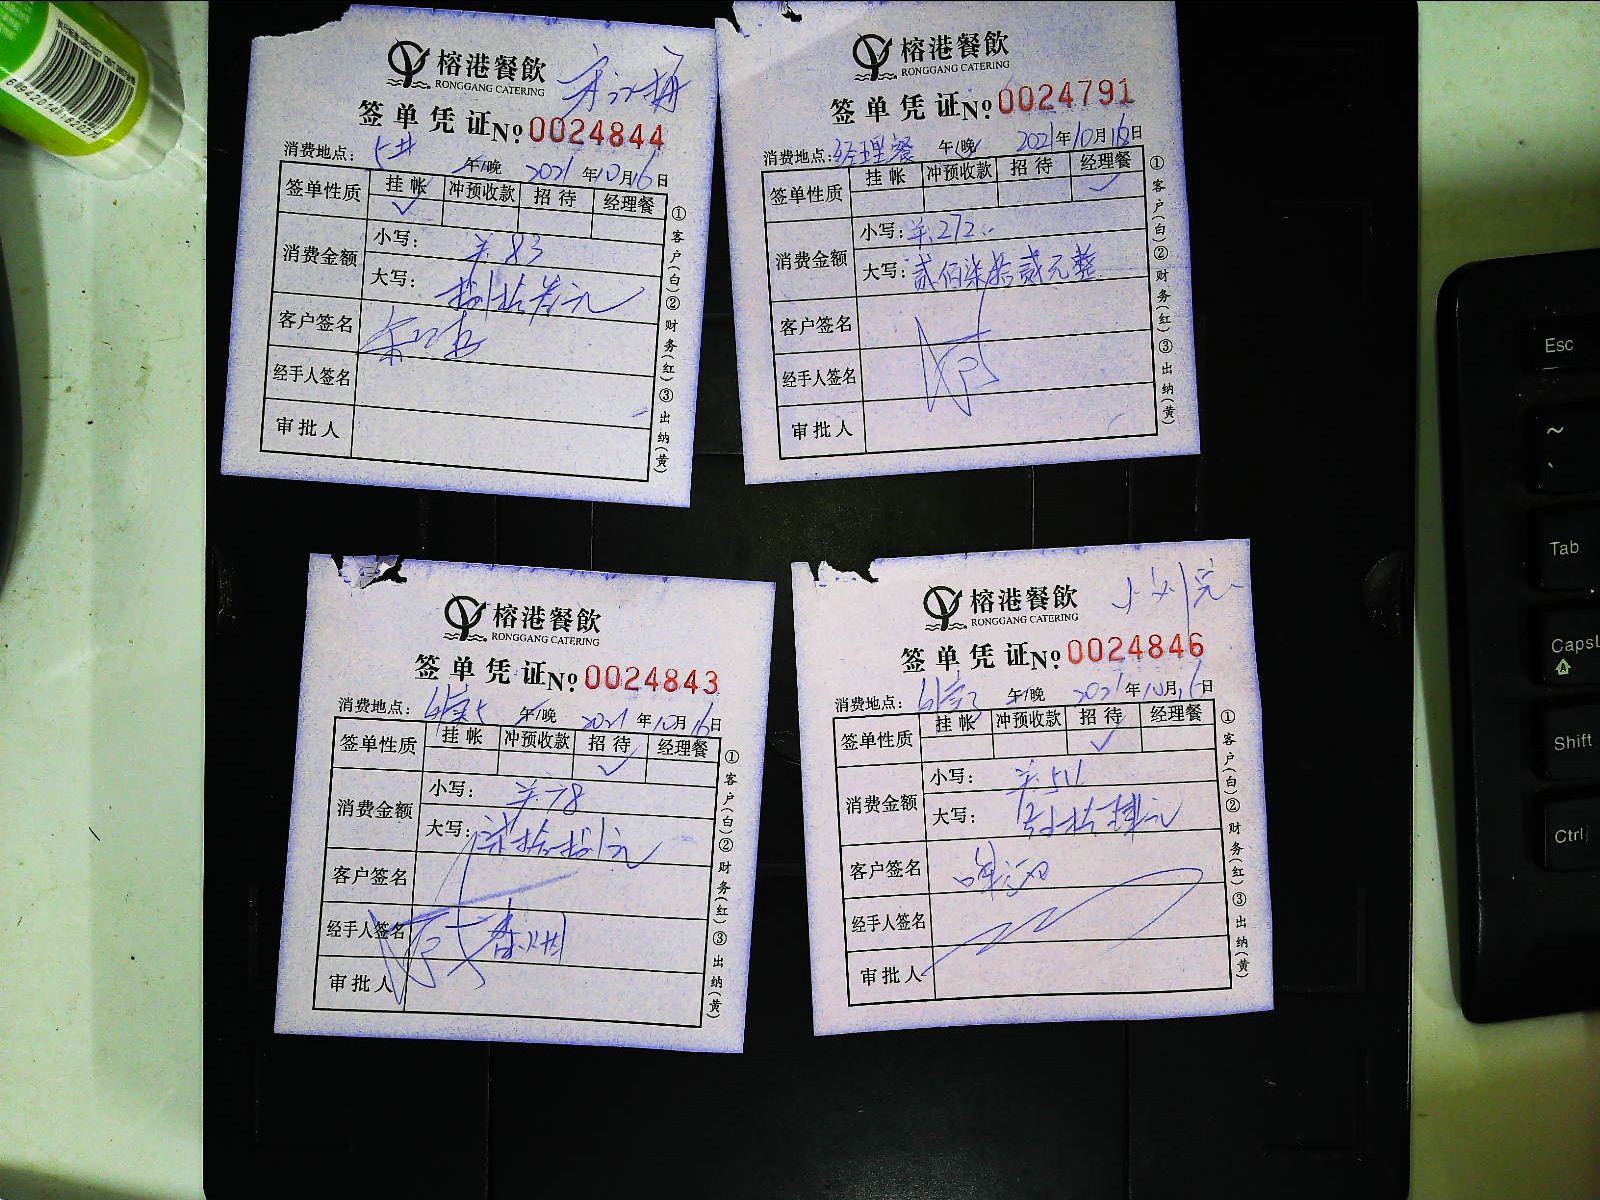 榕港餐飲
RONGGANG CATERING
签单凭证№0024844
消费地点: 午/晚 2021年10月16日
签单性质 挂帐 冲预收款 招待 经理餐
✓
消费金额 小写: 羊.83
大写: 捌拾叁元
客户签名
经手人签名
审批人
①客户(白)②财务(红)③出纳(黄)
榕港餐飲
RONGGANG CATERING
签单凭证№0024791
消费地点:经理餐 午/晚 2021年10月16日
签单性质 挂帐 冲预收款 招待 经理餐
✓
消费金额 小写:羊.272..
大写:贰佰柒拾贰元整
客户签名
经手人签名
审批人
①客户(白)②财务(红)③出纳(黄)
榕港餐飲
RONGGANG CATERING
签单凭证№0024843
消费地点: 午/晚 2021年10月16日
签单性质 挂帐 冲预收款 招待 经理餐
✓
消费金额 小写:
大写:
客户签名
经手人签名
审批人
①客户(白)②财务(红)③出纳(黄)
榕港餐飲
RONGGANG CATERING
签单凭证№0024846
消费地点: 午/晚 2021年10月16日
签单性质 挂帐 冲预收款 招待 经理餐
✓
消费金额 小写:
大写:
客户签名
经手人签名
审批人
①客户(白)②财务(红)③出纳(黄)
Esc
~
Tab
Caps
A
Shift
Ctrl